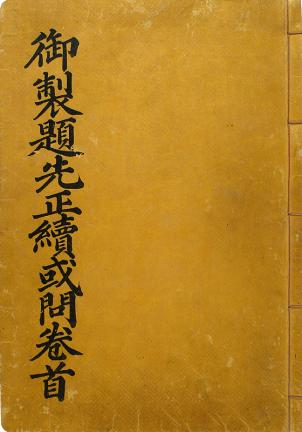 御製題先正續或問卷首